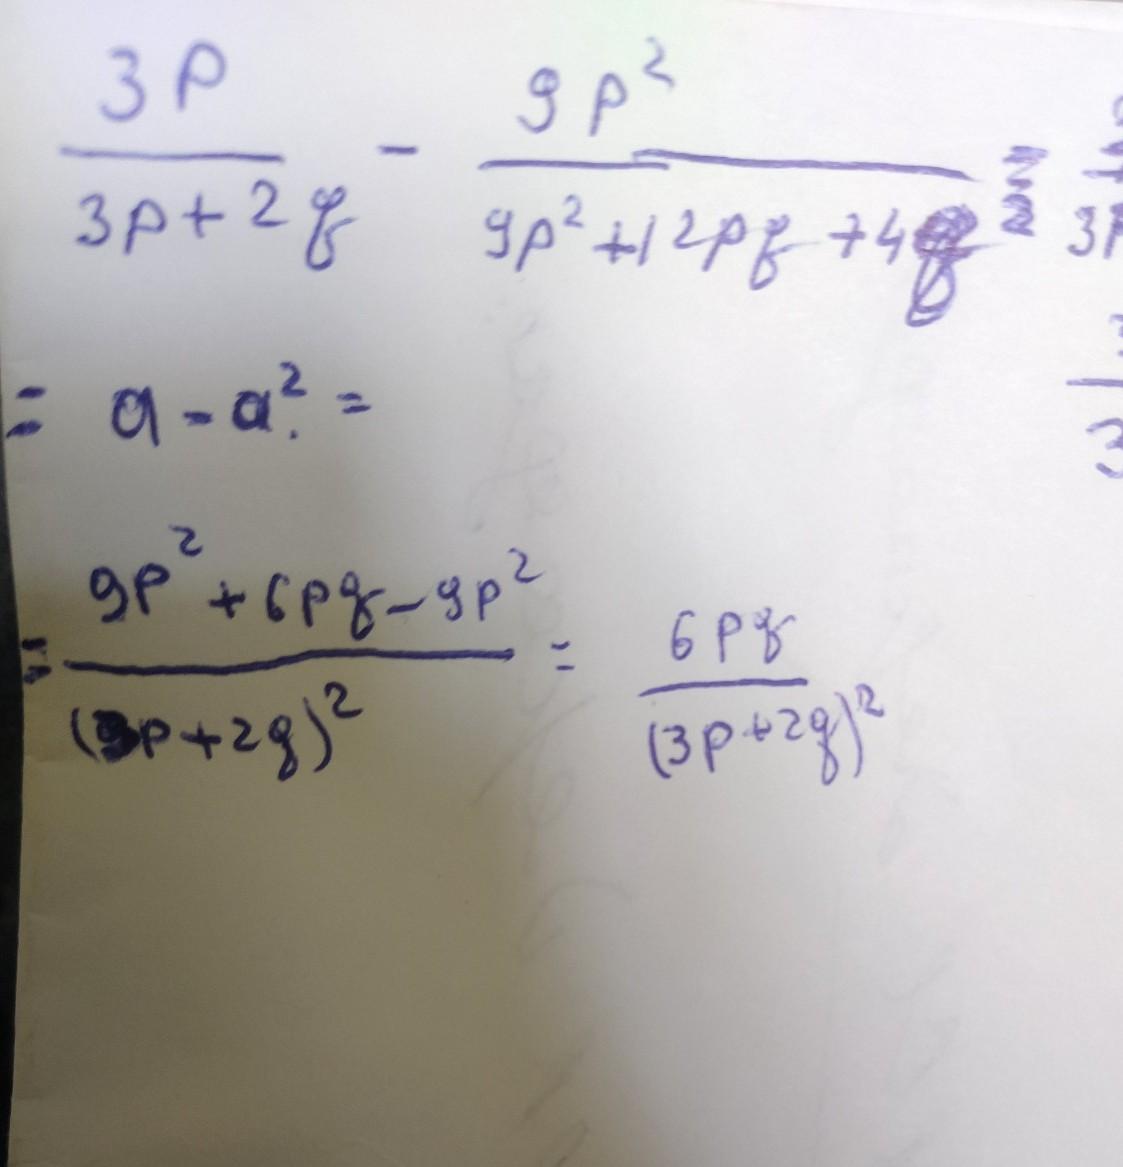 3p/(3p+2q) - 9p²/(9p²+12pq+4q²) =
= a - a² =
= (9p²+6pq-9p²)/(3p+2q)² = 6pq/(3p+2q)²